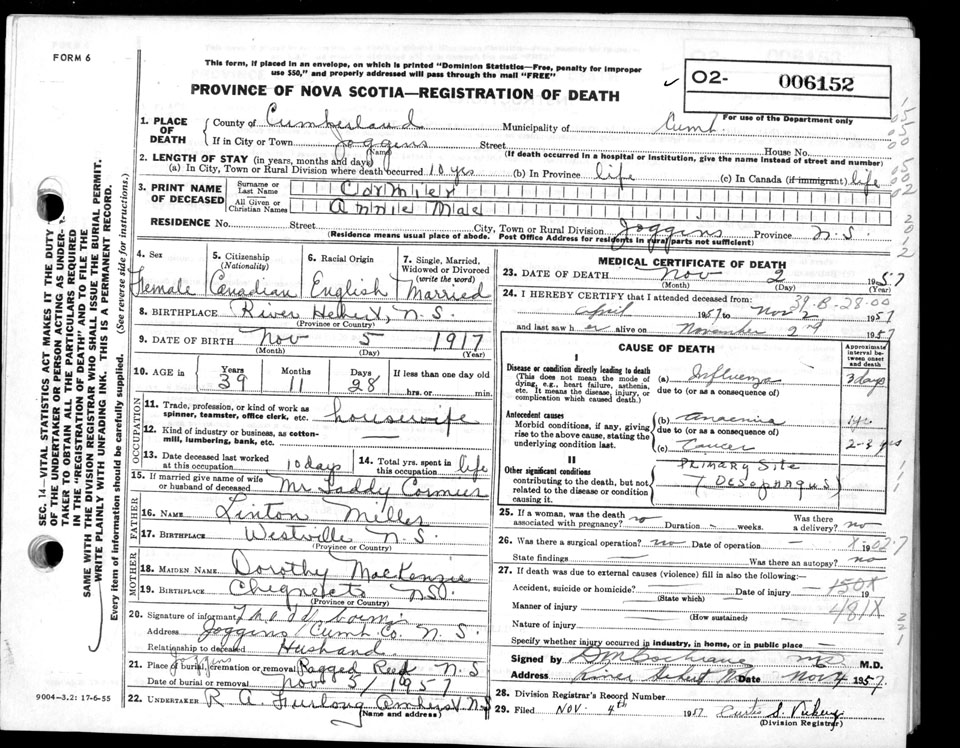 FORM 6
This form, if placed in an envelope, on which is printed "Dominion Statistics—Free, penalty for improper
use $50," and properly addressed will pass through the mail "FREE"
02- 006152
PROVINCE OF NOVA SCOTIA—REGISTRATION OF DEATH
For use of the Department only
1. PLACE OF DEATH
County of Cumberland Municipality of Cumb.
If in City or Town Joggins Street House No.
(Name) (If death occurred in a hospital or institution, give the name instead of street and number)
2. LENGTH OF STAY (in years, months and days)
(a) In City, Town or Rural Division where death occurred 10 yrs (b) In Province life (c) In Canada (if immigrant) life
3. PRINT NAME OF DECEASED
Surname or Last Name Cormier
All Given or Christian Names Annie Mae
RESIDENCE No. Street City, Town or Rural Division Joggins Province N.S.
(Residence means usual place of abode. Post Office Address for residents in rural parts not sufficient)
4. Sex Female
5. Citizenship (Nationality) Canadian
6. Racial Origin English
7. Single, Married, Widowed or Divorced (write the word) Married
8. BIRTHPLACE River Hebert, N.S.
(Province or Country)
9. DATE OF BIRTH Nov 5 1917
(Month) (Day) (Year)
10. AGE in Years 39 Months 11 Days 28 If less than one day old
hrs. or min.
OCCUPATION
11. Trade, profession, or kind of work as spinner, teamster, office clerk, etc. housewife
12. Kind of industry or business, as cotton-mill, lumbering, bank, etc. —
13. Date deceased last worked at this occupation 10 days 14. Total yrs. spent in this occupation life
15. If married give name of wife or husband of deceased Mr Laddy Cormier
FATHER
16. NAME Linton Miller
17. BIRTHPLACE Westville N.S.
(Province or Country)
MOTHER
18. MAIDEN NAME Dorothy MacKenzie
19. BIRTHPLACE Chignecto
(Province or Country)
20. Signature of informant
Address Joggins Cumb. Co. N.S.
Relationship to deceased Husband
21. Place of burial, cremation or removal Joggins Ragged Reef N.S.
Date of burial or removal Nov 5/1957
22. UNDERTAKER R A. Furlong Amherst N.S
(Name and address)
9004-3.2: 17-6-55
MEDICAL CERTIFICATE OF DEATH
23. DATE OF DEATH Nov 2 1957
(Month) (Day) (Year)
24. I HEREBY CERTIFY that I attended deceased from: 39-B-28-00
April 1957 to Nov 2 1957
and last saw her alive on November 2nd 1957
CAUSE OF DEATH
Approximate interval between onset and death
I
Disease or condition directly leading to death
(This does not mean the mode of dying, e.g., heart failure, asthenia, etc. It means the disease, injury, or complication which caused death.)
(a) Influenza 3 days
due to (or as a consequence of)
Antecedent causes
Morbid conditions, if any, giving rise to the above cause, stating the underlying condition last.
(b) Anaemia
due to (or as a consequence of)
(c) Cancer 2-3 yrs
II
Other significant conditions
contributing to the death, but not related to the disease or condition causing it.
PRIMARY SITE
25. If a woman, was the death associated with pregnancy? no Duration — weeks. Was there a delivery? no
26. Was there a surgical operation? no Date of operation — 19
State findings — Was there an autopsy? no
27. If death was due to external causes (violence) fill in also the following:—
Accident, suicide or homicide? Date of injury 19
(State which)
150X
Manner of injury
(How sustained)
481X
Nature of injury
Specify whether injury occurred in industry, in home, or in public place
Signed by M.D.
Address River Hebert N. Date Nov 4 1957.
28. Division Registrar's Record Number
29. Filed Nov. 4th 1957 Curtis S.
(Division Registrar)
SEC. 14—VITAL STATISTICS ACT MAKES IT THE DUTY
OF THE UNDERTAKER OR PERSON ACTING AS UNDER-
TAKER TO OBTAIN ALL THE PARTICULARS REQUIRED
IN THE "REGISTRATION OF DEATH" AND TO FILE THE
SAME WITH THE DIVISION REGISTRAR WHO SHALL ISSUE THE BURIAL PERMIT.
WRITE PLAINLY WITH UNFADING INK. THIS IS A PERMANENT RECORD.
Every item of information should be carefully supplied. (See reverse side for instructions.)